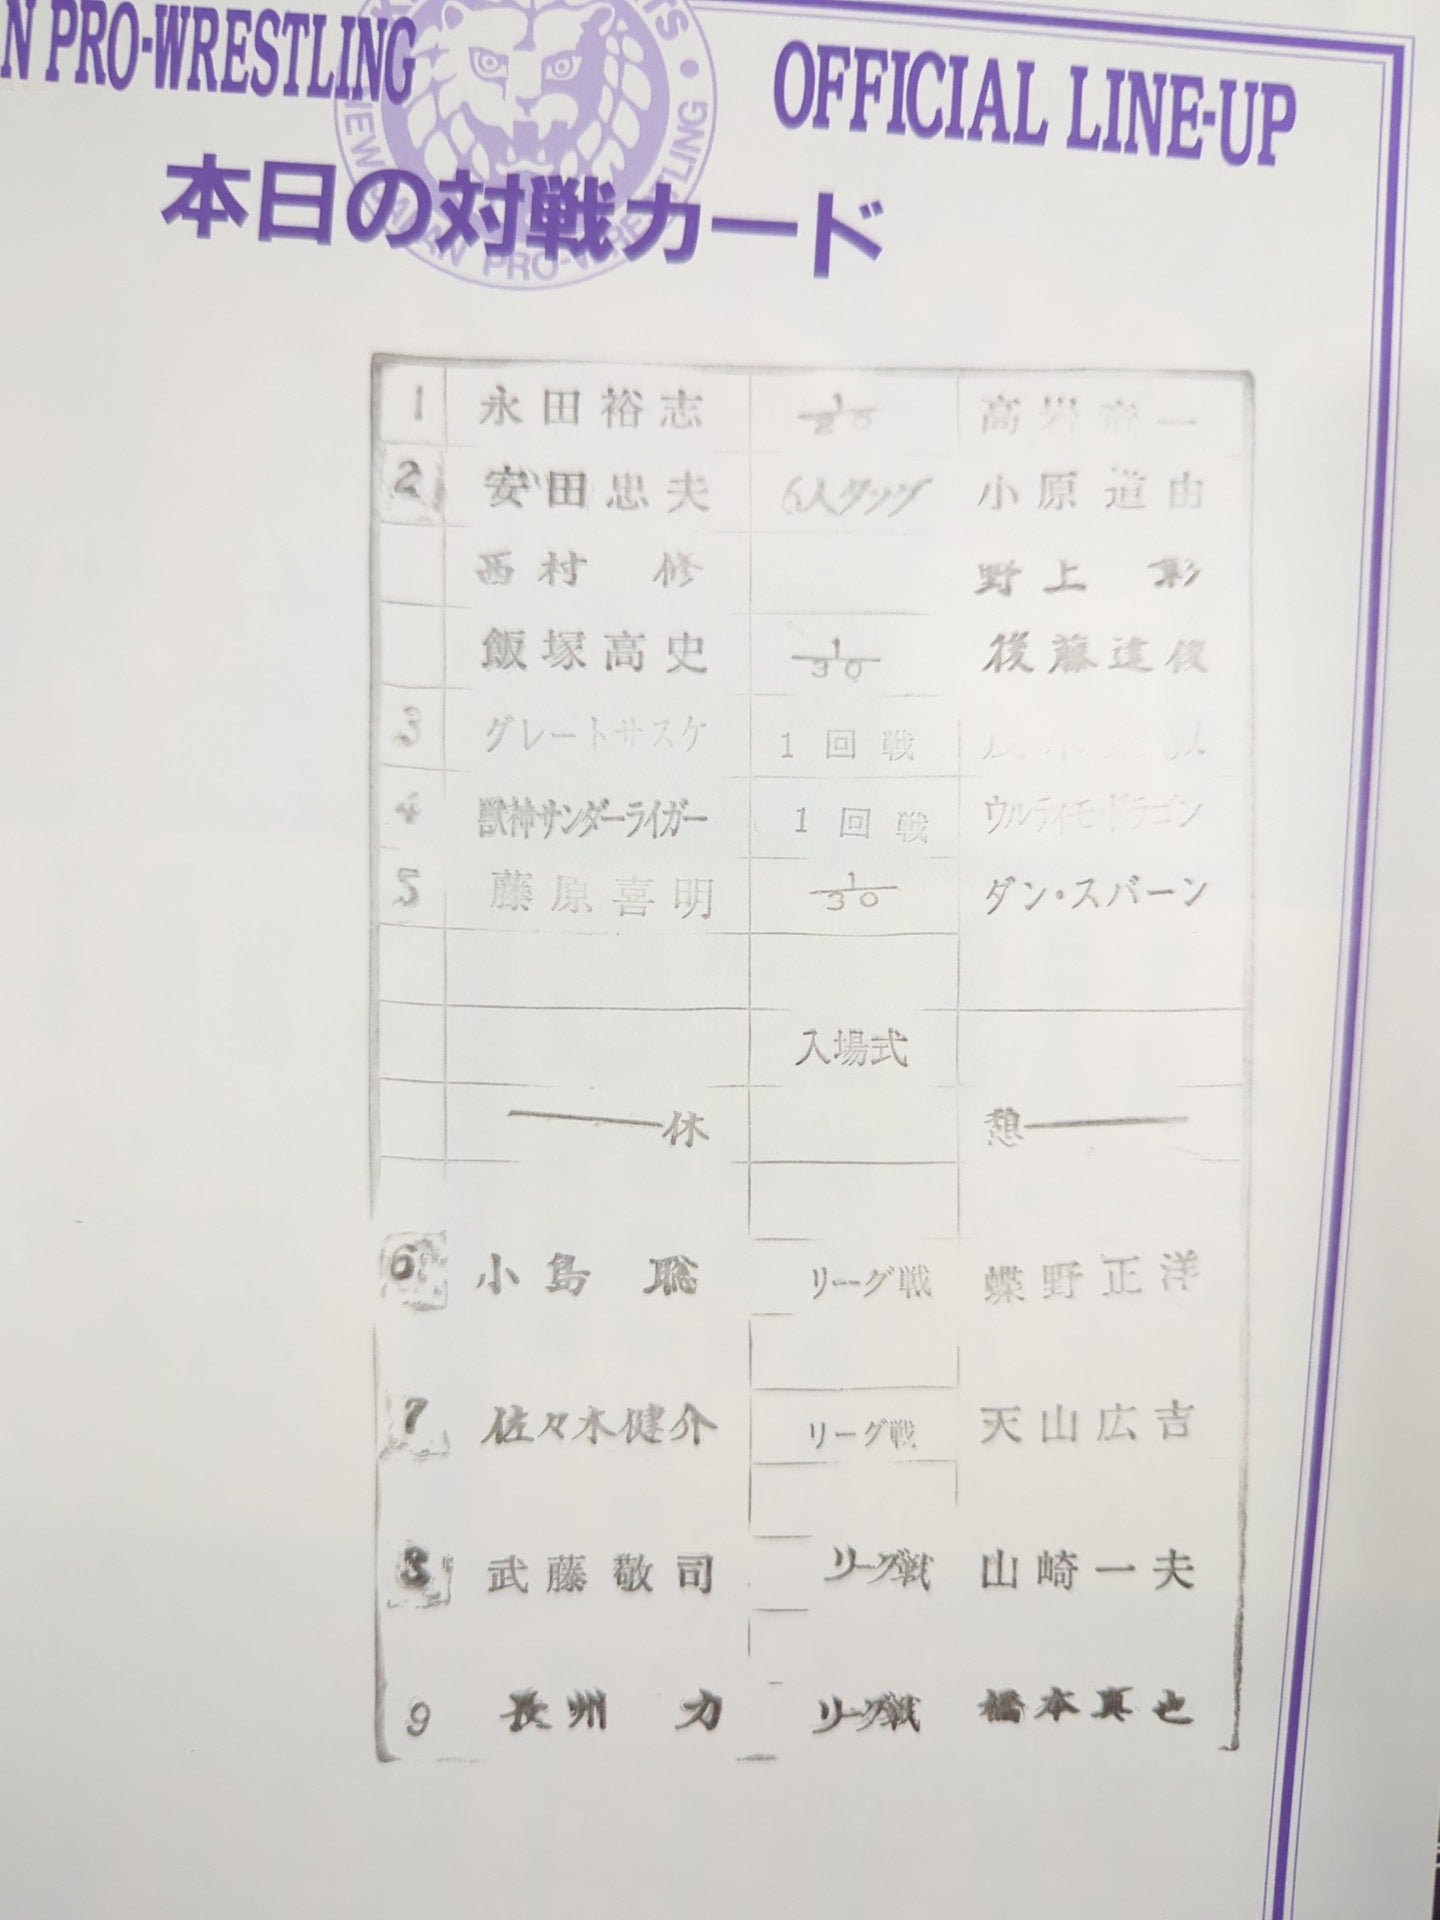 N PRO-WRESTLING
OFFICIAL LINE-UP
NEW JAPAN PRO-WRESTLING
本日の対戦カード
1 永田裕志 1/20 高岩竜一
2 安田忠夫 6人タッグ 小原道由
西村 修 野上 彰
飯塚高史 1/30 後藤達俊
3 グレートサスケ 1回戦
4 獣神サンダーライガー 1回戦 ウルティモ・ドラゴン
5 藤原喜明 1/30 ダン・スバーン
入場式
休 憩
6 小島 聡 リーグ戦 蝶野正洋
7 佐々木健介 リーグ戦 天山広吉
8 武藤敬司 リーグ戦 山崎一夫
9 長州 力 リーグ戦 橋本真也